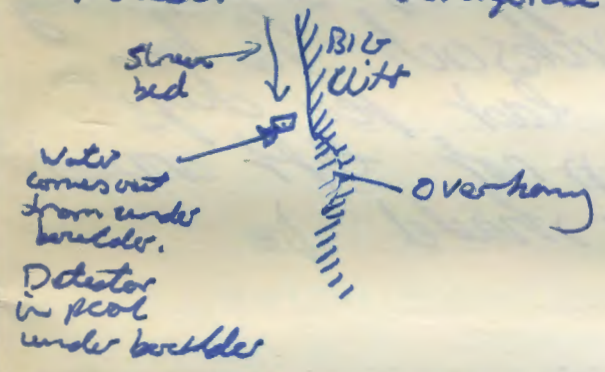 Stream
bed
BIG
Cliff
Overhang
Water
comes out
from under
boulder.
Detector
in pool
under boulder